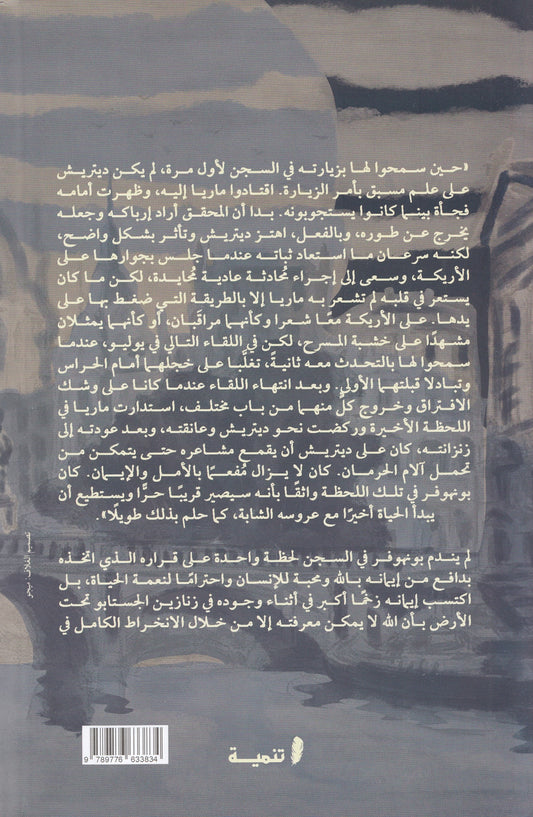 «حين سمحوا لها بزيارته في السجن لأول مرة، لم يكن ديتريش
على علم مسبق بأمر الزيارة. اقتادوا ماريا إليه، وظهرت أمامه
فجأة بينما كانوا يستجوبونه. بدا أن المحقق أراد إرباكه وجعله
يخرج عن طوره، وبالفعل، اهتز ديتريش وتأثر بشكل واضح،
لكنه سرعان ما استعاد ثباته عندما جلس بجوارها على
الأريكة، وسعى إلى إجراء مُحادثة عادية مُحايدة، لكن ما كان
يستعر في قلبه لم تشعر به ماريا إلا بالطريقة التي ضغط بها على
يدها. على الأريكة معًا شعرا وكأنهما مراقَبان، أو كأنهما يمثلان
مشهدًا على خشبة المسرح، لكن في اللقاء التالي في يوليو، عندما
سمحوا لها بالتحدث معه ثانيةً، تغلَّبا على خجلهما أمام الحراس
وتبادلا قبلتهما الأولى. وبعد انتهاء اللقاء عندما كانا على وشك
الافتراق وخروج كلٌّ منهما من باب مختلف، استدارت ماريا في
اللحظة الأخيرة وركضت نحو ديتريش وعانقته، وبعد عودته إلى
زنزانته، كان على ديتريش أن يقمع مشاعره حتى يتمكن من
تحمل آلام الحرمان. كان لا يزال مُفعمًا بالأمل والإيمان. كان
بونهوفر في تلك اللحظة واثقًا بأنه سيصير قريبًا حرًّا ويستطيع أن
يبدأ الحياة أخيرًا مع عروسه الشابة، كما حلم بذلك طويلًا».
لم يندم بونهوفر في السجن لحظة واحدة على قراره الذي اتخذه
بدافع من إيمانه بالله ومحبة للإنسان واحترامًا لنعمة الحياة، بل
اكتسب إيمانه زخمًا أكبر في أثناء وجوده في زنازين الجستابو تحت
الأرض بأن الله لا يمكن معرفته إلا من خلال الانخراط الكامل في
تصميم الغلاف:
9 789776 633834
تنمية